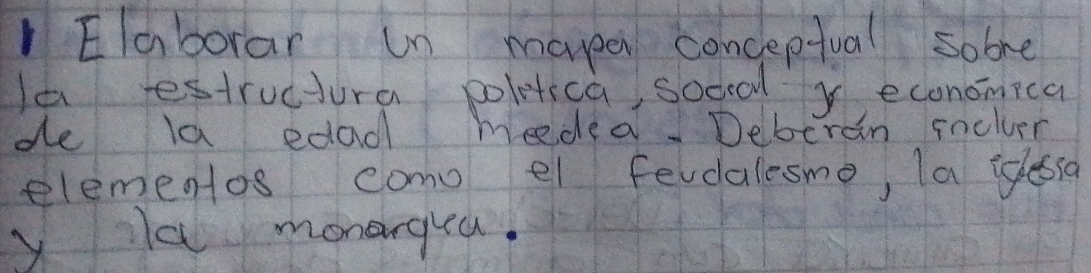 1 Elaborar un mapa conceptual sobre
la estructura política, social y económica
de la edad meedea. Deberán incluir
elementos como el feudalesmo, la iglesia
y la monarquia.